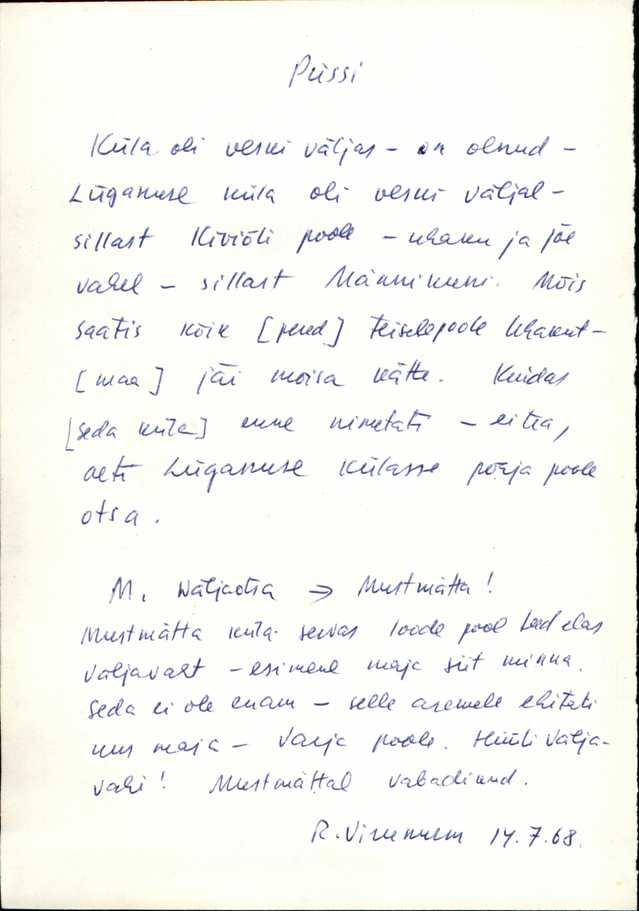 Püssi
Küla oli veski väljas – on olnud –
Lüganuse küla oli veski väljal –
sillast Kiviõli poole – uhaku ja jõe
vahel – sillast Männikuni. Mõis
saatis kõik [pered] teiselepoole Uhakut –
[maa] jäi moisa kätte. Kuidas
[seda küla] enne nimetati – ei tea,
aeti Lüganuse külasse põhja poole
otsa.
M. Väljaotsa → Mustmätta!
Mustmätta küla servas loode pool elas
väljavaht – esimene maja siit minna.
Seda ei ole enam – selle asemele ehitati
uus maja – Varja poole. Hüüti välja-
vahi! Mustmättal vabadikud.
R. Virunurm 14.7.68.